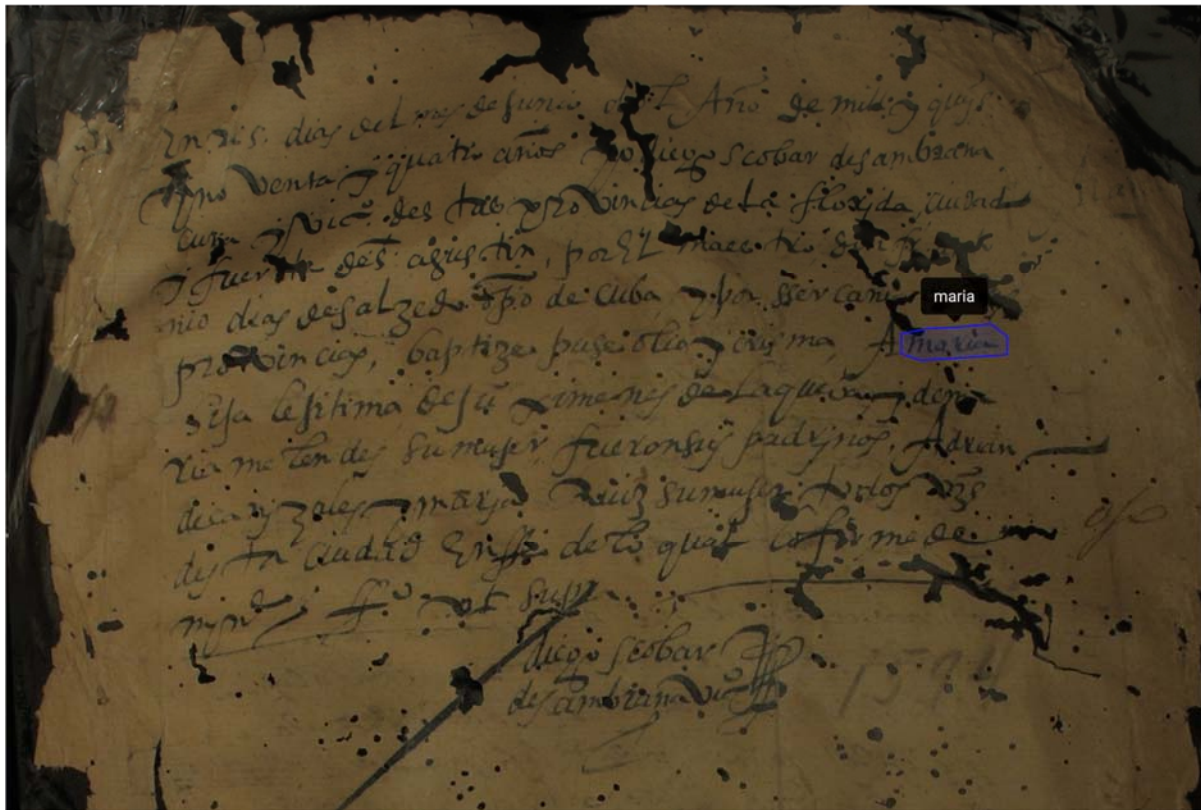 En tres dias del mes de Junio del Año de mill y quis
y no venta y quatro años yo diego scobar de sambrana
cura y Vicº des tas provincias de la florida ciudad
y fuerte de st agustin, por El maestro
nio dias de salzedo obpo de Cuba y por ser can
maria
provincias, baptize puse olio y crisma, A maria
hija lesitima de Ju ximenes de la queba y de ma
ria melendes su muger fueron sus padrinos, Adrian
de canizales y maria Ruiz su muger todos vzs
desta ciudad En ffe de lo qual lo firme de
my ne ffº Vt supr
diego scobar
de sambrana Vicº
1594